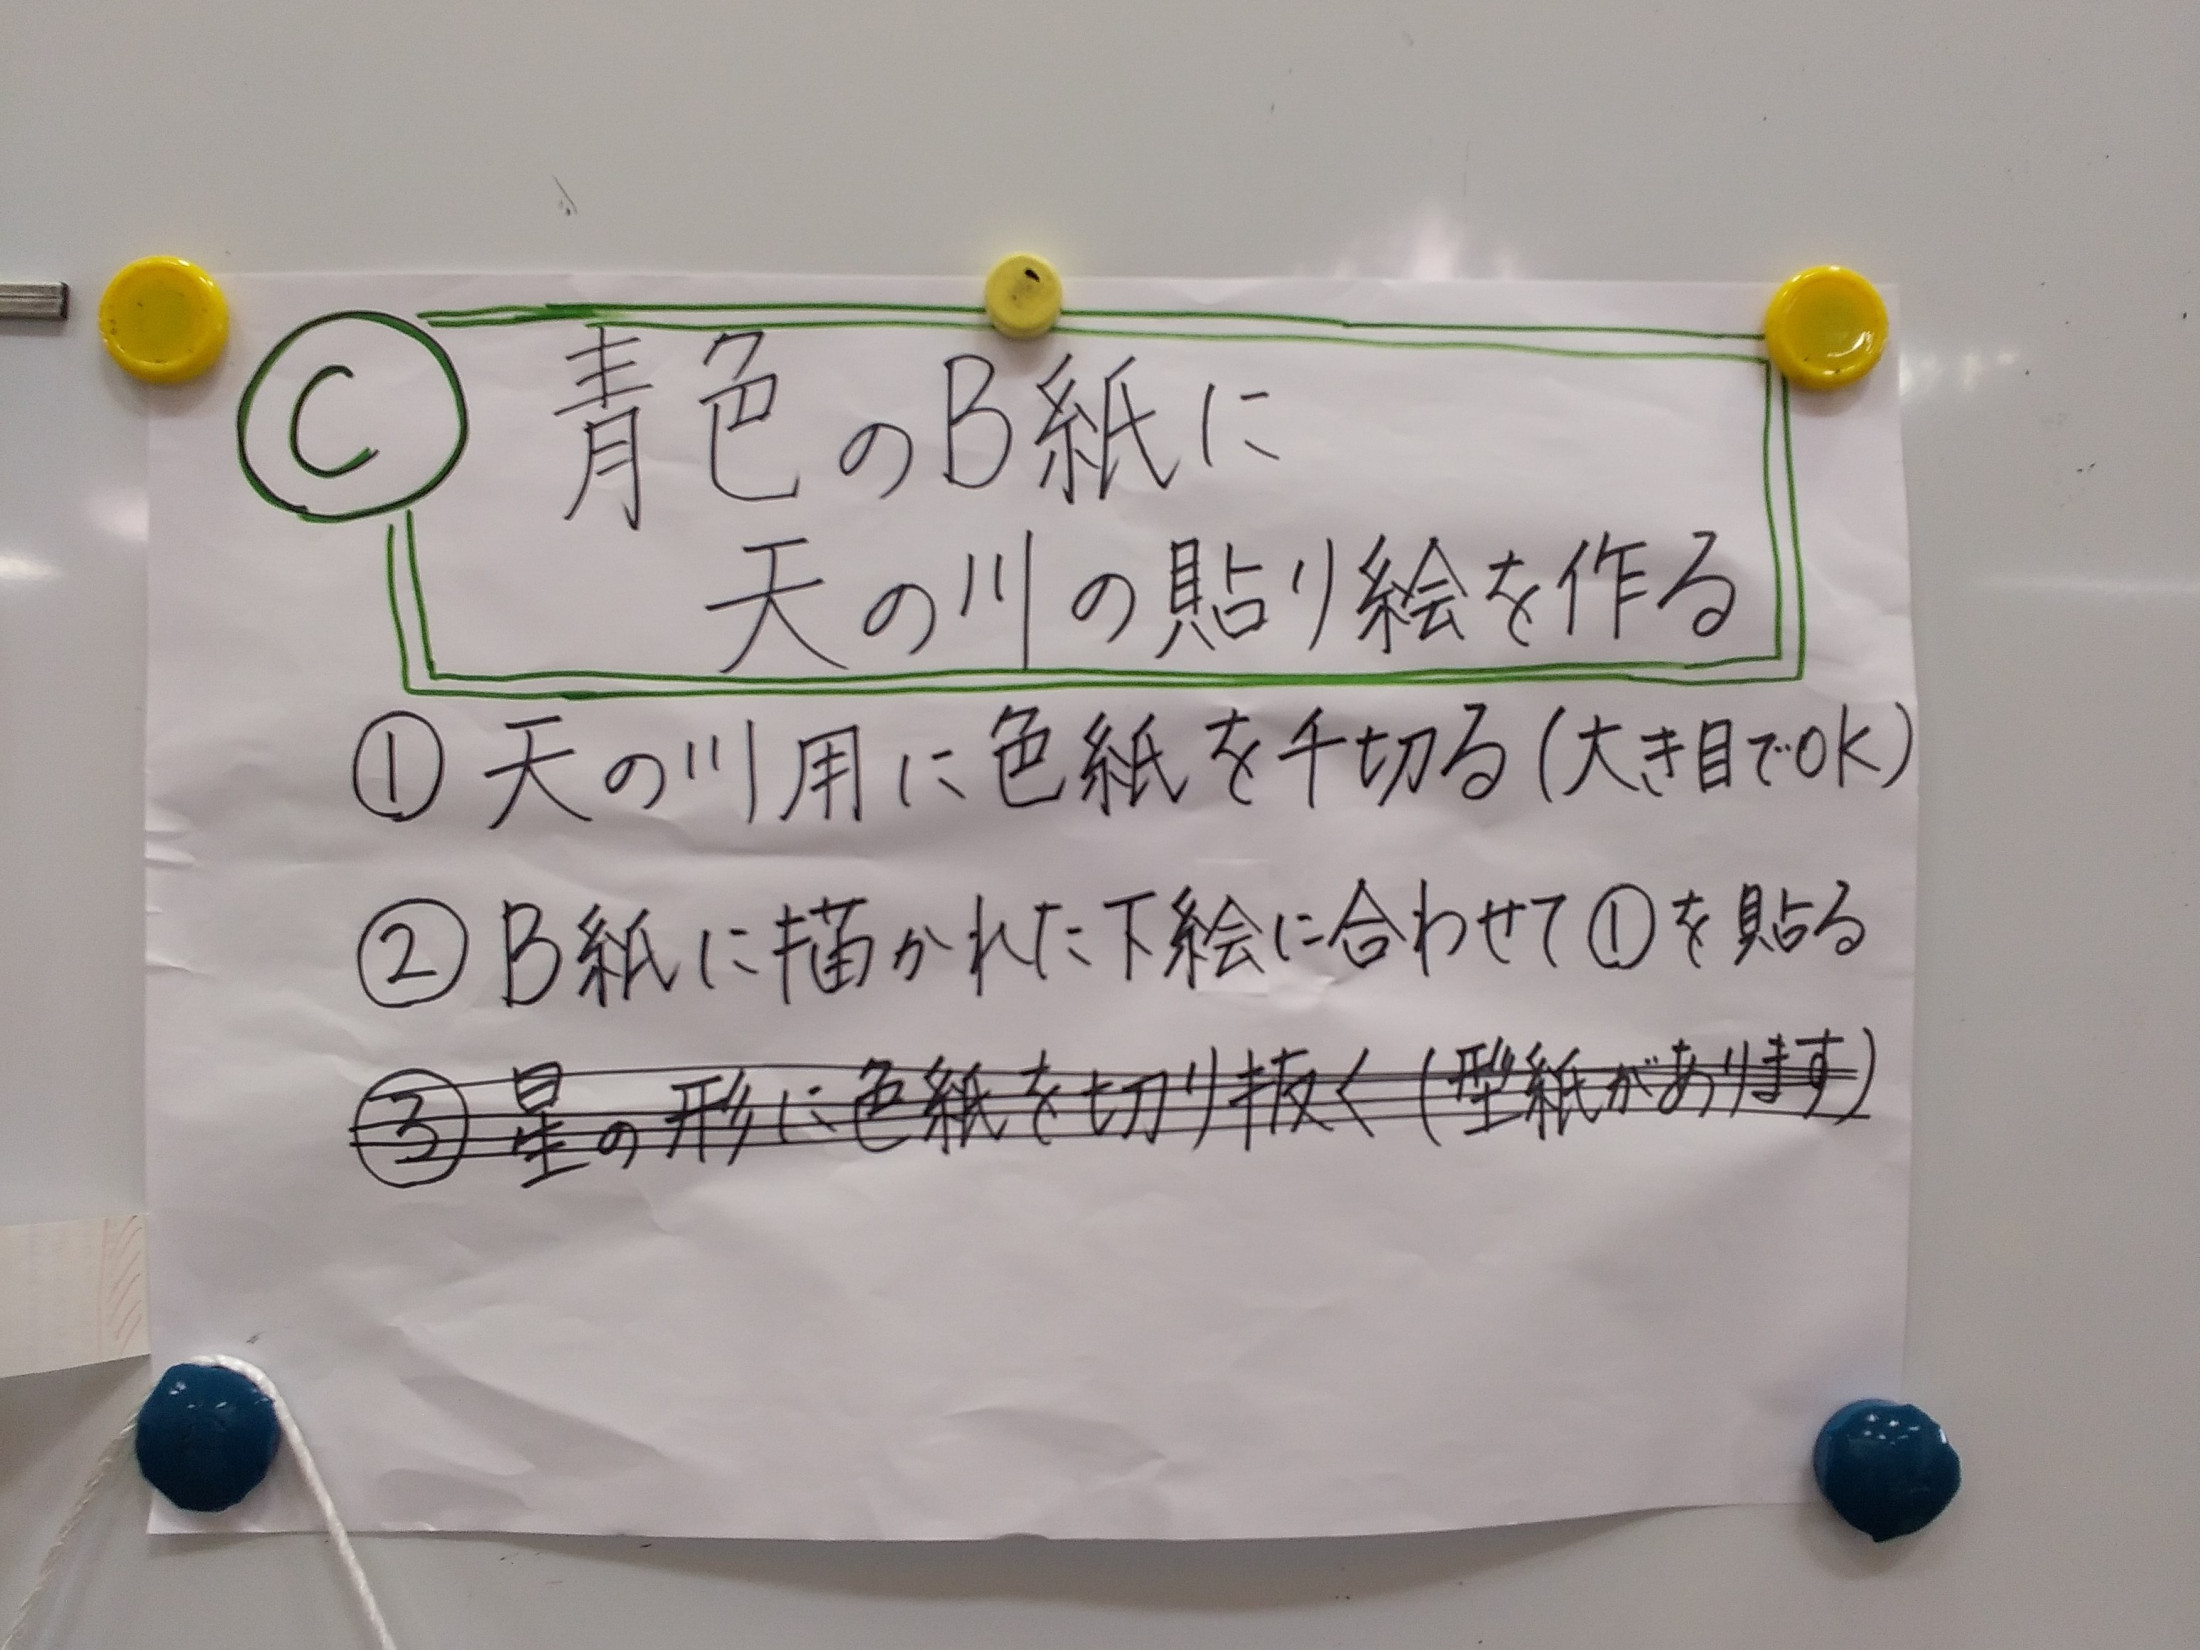 C 青色のB紙に
天の川の貼り絵を作る
① 天の川用に色紙を千切る(大き目でOK)
② B紙に描かれた下絵に合わせて①を貼る
③ 星の形に色紙を切り抜く(型紙があります)